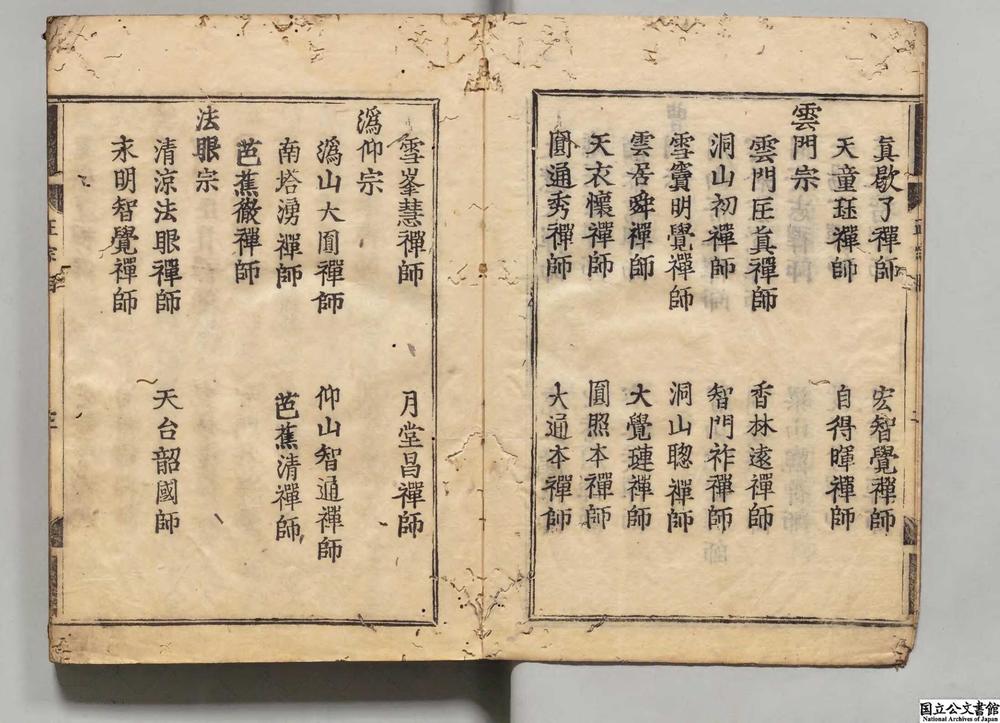 眞歇了禪師　宏智覺禪師
天童珏禪師　自得暉禪師
雲門宗
雲門匡眞禪師　香林遠禪師
洞山初禪師　智門祚禪師
雪竇明覺禪師　洞山聦禪師
雲居舜禪師　大覺璉禪師
天衣懷禪師　圓照本禪師
圓通秀禪師　大通本禪師
雪峯慧禪師　月堂昌禪師
潙仰宗
潙山大圓禪師　仰山智通禪師
南塔湧禪師　芭蕉清禪師
芭蕉徹禪師
法眼宗
清涼法眼禪師　天台韶國師
永明智覺禪師
国立公文書館
National Archives of Japan